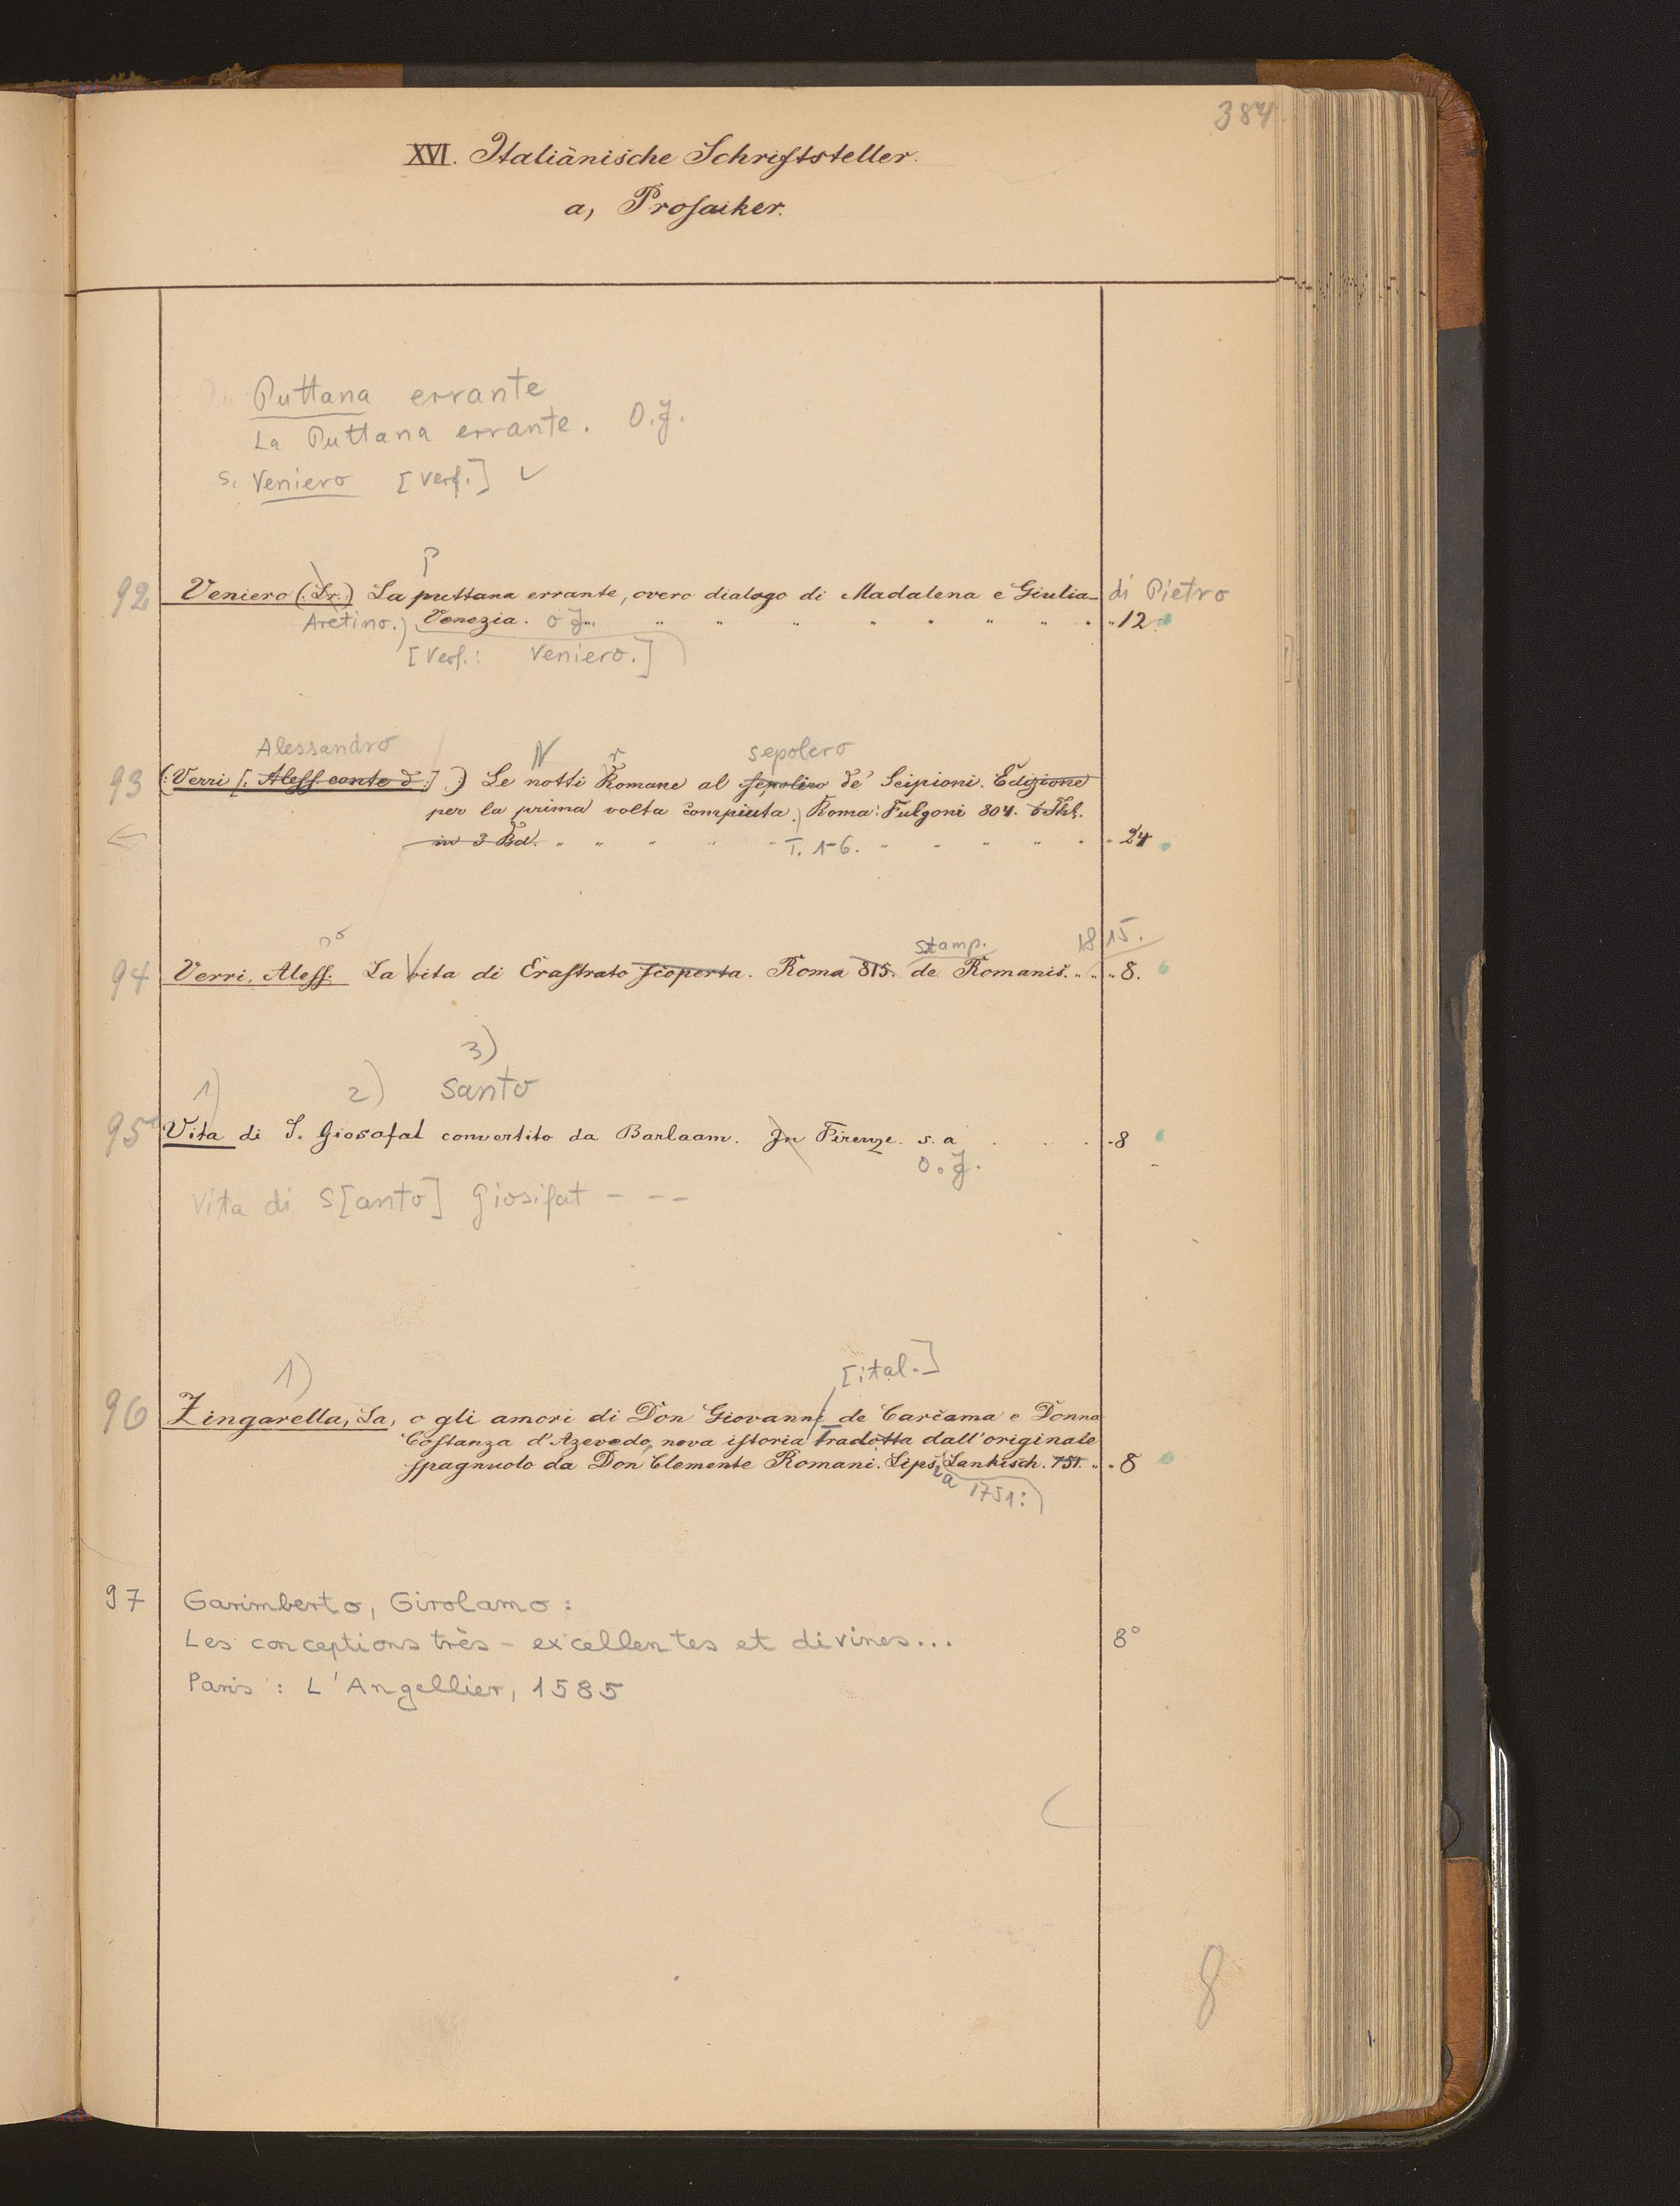 384
XVI. Italiänische Schriftsteller.
a, Prosaiker.
Puttana errante
La Puttana errante. O.J.
s. Veniero [Verf.] ✓
P
92 Veniero (: Lr :) La puttana errante, overo dialogo di Madalena e Giulia di Pietro
Aretino.) Venezia. o J. 12.
[Verf.: Veniero.]
Alessandro N r sepolcro
93 (: Verri [: Aless. conte d :] :) Le notti Romane al sepolcro de' Scipioni. Edizione
per la prima volta compiuta.) Roma: Fulgoni 804. 6 Thl.
← in 3 Bd. T. 1-6. 24
stamp. 1815.
94 Verri, Aless. La vita di Erastrato scoperta. Roma 815. de Romanis. 8.
3)
1) 2) Santo
95 Vita di S. Giosafat convertito da Barlaam. In Firenze. s. a . . . 8
O.J.
Vita di S[anto] Giosifat - - -
1) [ital.]
96 Zingarella, La, o gli amori di Don Giovanni de Carcama e Donna
Costanza d'Azevedo, nova istoria tradotta dall'originale
spagnuolo da Don Clemente Romani. Lips. Lankisch. 751. 8
1751:
97 Garimberto, Girolamo:
Les conceptions très-excellentes et divines... 8°
Paris: L'Angellier, 1585
8